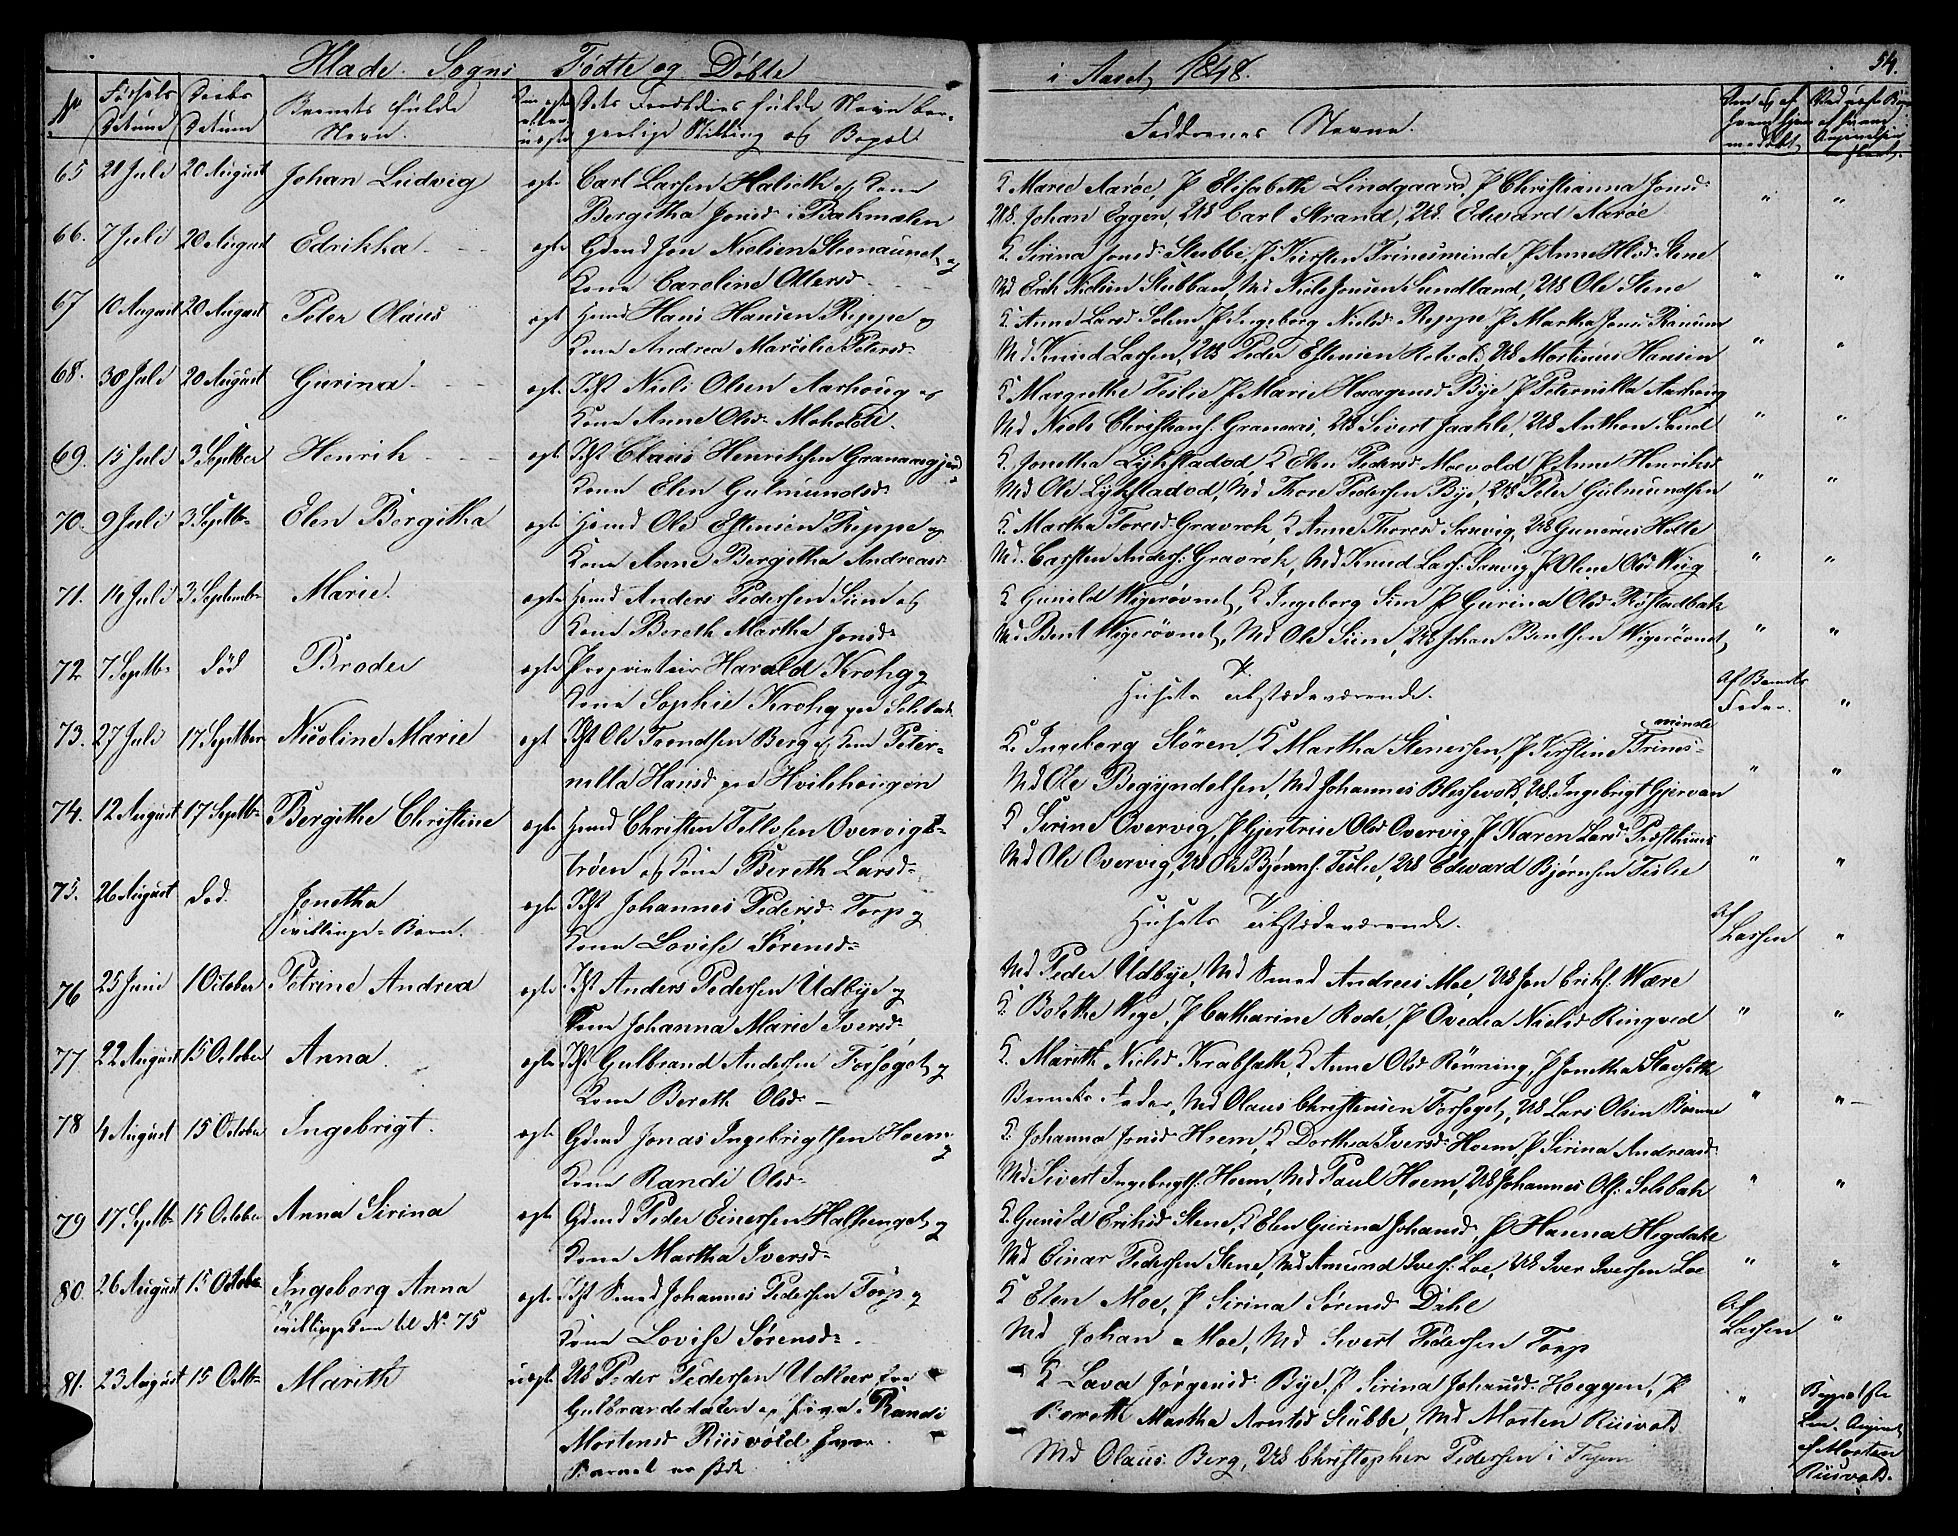 Hlade Sogns Fødte og Døbte i Aaret 1848. 54.
No Fødsels Datum Daabs Datum Barnets fulde Navn. Om ægte eller uægte Forældres fulde Navn borgerlige Stilling og Bopæl Faddernes Navne.
65 21 Juli 20 August Johan Ludvig ægte Carl Larsen Halseth og Kone
Bergitha Jonsd: i Bakmælen
K Marie Aarøe, P Elisabeth Lindgaard, P Christianna Jonsd:
UK. Johan Eggen, UK Carl Strand, UK. Edward Aarøe
66. 7 Juli 20 August Edrikha ægte Gdmd Jon Nielsen Steenaunet og
Kone Caroline Ottersd
K. Sirina Jonsd: Stubbe, P Kirsten Trinesminde, P Anne Olsd: Stene
Md Erik Nielsen Stubban, Md Niels Jonsen Sundland, UK Ole Stene
67 10 August 20 August Peter Olaus ægt Hmd Hans Hansen Reppe og
Kone Andrea Marcelie Petersd:
K. Anne Larsd Solem, P Ingeborg Nielsd: Reppe, P Martha Jonsd Ranum
Md Knud Larsen, UK Peder Estensen Retvold, UK Martinus Hansen
68. 30 Juli 20 August Gurina ægte Ihst Niels Olsen Aarhoug og
Kone Anne Olsd: Moholdt.
K Margrethe Teslie, P Marie Haagensd Bye, P Peternilla Aarhoug
Md Niels Christians: Granaas, UK Sivert Jaahle, UK Anthon Sand
69. 15 Juli 3 Septber Henrik ægte Ihst Claus Henriksen Granaasgjerd
Kone Elen Gulmundsd:
K. Jonetha Lykstadød, K Elen Pedersd Moevold, P Anne Henriksd
Md Ole Lykstadød, Md Thore Pedersen Bye, UK Peter Gulmundsen
70. 9 Juli 3 Septb: Elen Bergitha ægte Hmd Ole Estensen Reppe og
Kone Anne Bergitha Andreasd:
K. Martha Toresd Gravrok, K Anne Thoresd Saxvig, UK Gunerius Holte
Md. Carsten Anders: Gravrok, Md Knud Lars: Saxvig, P Oline Olsd: Wiig
71. 14 Juli 3 Septemb: Marie. ægte Hmd Anders Pedersen Siem og
Kone Bereth Martha Jonsd:
K Gunild Wigerøvnet, K Ingeborg Siem, P Gurina Olsd Røstadbak
Md. Bent Wigerøvnet, Md Ole Siem, UK Johan Bentsen Wigerøvnet
72 7 Septb: død Broder ægte Proprietair Harald Krohg og
Kone Sophie Krohg paa Selsbak
Husets tilstædeværende. Af Barnets Fader.
73. 27 Juli 17 Septber Nicoline Marie ægt Ihst Ole Trondsen Berg og Kone Peter-
nilla Hansd paa Hvilhougen
K. Ingeborg Støren, K Martha Stenersen, P Kirstine Trines-
minde
Md Ole Begyndelsen, Md Johannes Blessevold, UK. Ingebrigt Gjervan
74. 12 August 17 Septb: Bergithe Christine ægte Hmd Christen Tellefsen Overvigs-
trøen og Kone Bereth Larsd:
K Sirine Overvig, P Gjertrue Olsd Overvig, P Karen Larsd: Præsthuus
Md Ole Overvig, UK Ole Bjørns: Teslie, UK Edward Bjørnsen Teslie
75. 26 August død. Jonetha
Tvillinge-Barn. ægte Ihst Johannes Pedersd: Torp og
Kone Lovise Sørensd:
Husets tilstædeværende. Af Larsen
76 25 Juni 1 October Petrine Andrea ægte Ihst Anders Pedersen Udbye og
Kone Johanna Marie Iversd:
Md Peder Udbye, Md Smed Andreas Moe, UK Jon Eriks: Wære
K. Bolethe Wige, P Catharine Rode, P Ovedia Nielsd Ringved
77 22 August 15 October Anna. ægte Ihst Gulbrand Andersen Forsøget og
Kone Bereth Olsd:
K. Mareth Nielsd Krabseth, K Anne Olsd Rønning, P Jonetha Stavseth
Barnets Fader, Md Olaus Christensen Forsøget, UK Lars Olsen
78 4 August 15 October Ingebrigt. ægte Gdmd Jonas Ingebrigtsen Hoem og
Kone Randi Olsd:
K. Johanna Jonsd Hoem, K Dorthea Iversd: Hoem, P Sirina Andreasd:
Md: Sivert Ingebrigts: Hoem, Md Paul Hoem, UK Johannes Ols: Selsbak
79 17 Septb: 15 October Anna Sirina ægte Gdmd Peder Einersen Halsenget og
Kone Martha Iversd:
K. Gunild Eriksd Stene, K Elen Gurina Johansd:, P Hanna Hegdahl
Md Einar Pedersen Stene, Md Amund Ivers: Loe, UK Iver Iversen Loe
80. 26 August 15 Octob: Ingeborg Anna
Tvillingebarn til No 75 ægte Ihst Smed Johannes Pedersen Torp og
Kone Lovise Sørensd:
K Elen Moe, P Sirina Sørensd Dahl
Md Johan Moe, Md Sivert Pedersen Torp
Af Larsen
81. 23 August 15 Octb: Marith uægte UK Peder Pedersen Udkier fra
Gulbrandsdalen og Pigen Randi
Mortensd Riisvold hvor
Barnet er født
K Lava Jørgensd: Bye, P Sirina Johansd: Hoeggen, P
Bereth Martha Arntsd Stubbe, Md Morten Riisvold
Md Olaus Berg, UK Christopher Pedersen i
Angivet
af Morten
Riisvold.